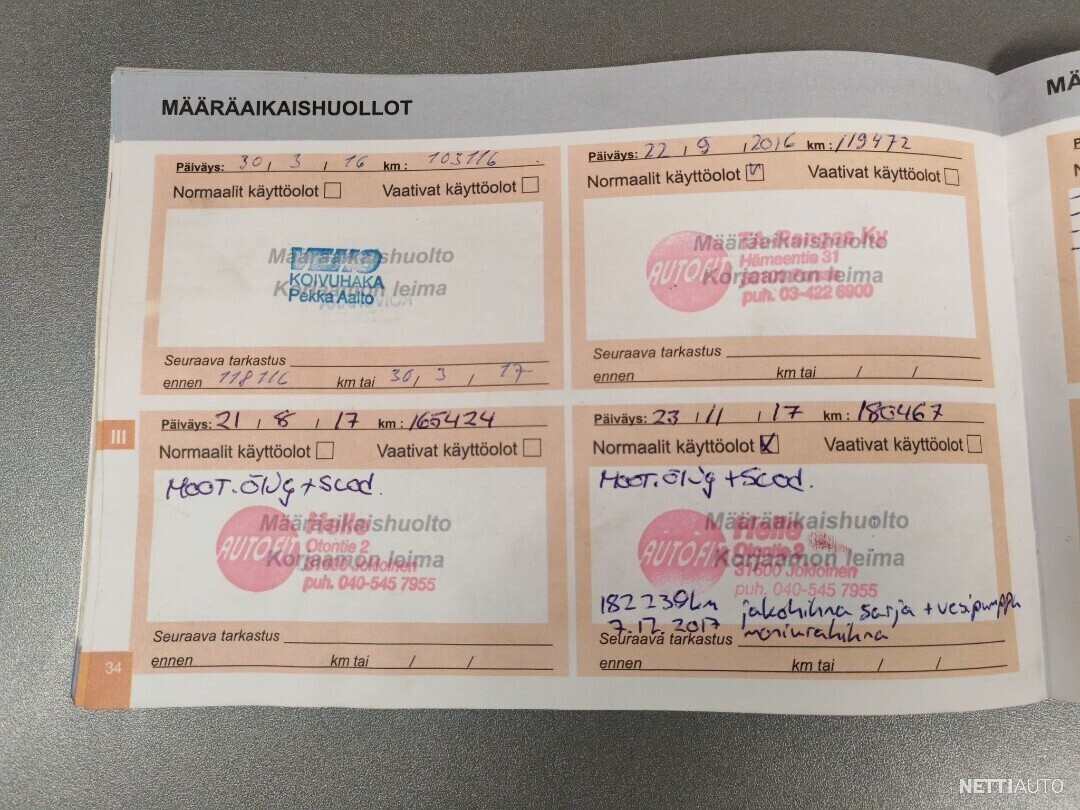 MÄÄRÄAIKAISHUOLLOT
MÄ
Päiväys: 30 / 3 / 16 km: 103116
Normaalit käyttöolot Vaativat käyttöolot
Määräaikaishuolto
Korjaamon leima
VEHO
KOIVUHAKA
Pekka Aalto
Seuraava tarkastus
ennen 118116 km tai 30 / 3 / 17
Päiväys: 22 / 9 / 2016 km: 119472
Normaalit käyttöolot Vaativat käyttöolot
Määräaikaishuolto
Korjaamon leima
AUTOFIT
Hämeentie 31
puh. 03-422 6900
Seuraava tarkastus
ennen km tai / /
III
Päiväys: 21 / 8 / 17 km: 165424
Normaalit käyttöolot Vaativat käyttöolot
MOOT.ÖLJY + SUOD.
Määräaikaishuolto
Korjaamon leima
AUTOFIT
Otontie 2
31600 Jokioinen
puh. 040-545 7955
Seuraava tarkastus
ennen km tai / /
Päiväys: 23 / 11 / 17 km: 180467
Normaalit käyttöolot Vaativat käyttöolot
MOOT.ÖLJY + SUOD.
Määräaikaishuolto
Korjaamon leima
AUTOFIT
Otontie 2
31600 Jokioinen
puh. 040-545 7955
182239km jakohihna sarja + vesipumppu
7.12.2017 moniurahihna
Seuraava tarkastus
ennen km tai / /
34
NETTIAUTO